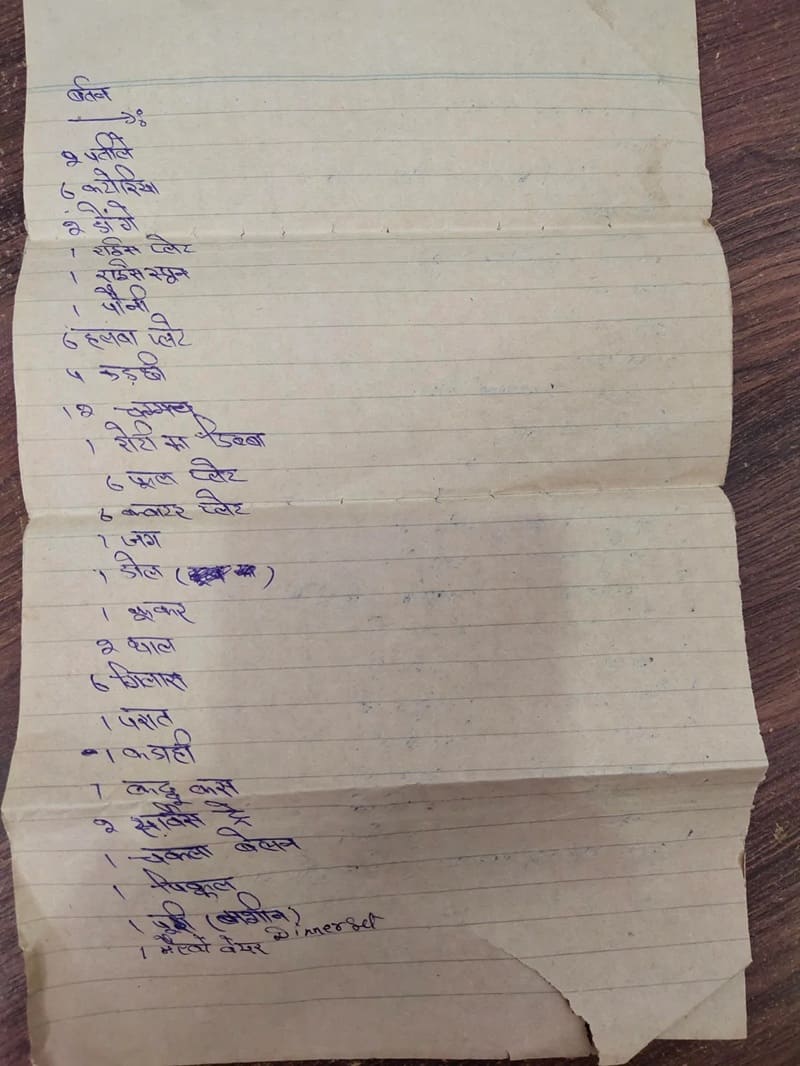 बर्तन
२ पतीले
6 कटोरिया
२ डोंगे
1 राईस प्लेट
1 राईस स्पून
1 पौनी
6 हलवा प्लेट
५ कड़छी
1२ चम्मच
1 रोटी का डिब्बा
6 फूल प्लेट
6 क्वाटर प्लेट
1 जग
1 डोल
1 कूकर
२ थाल
6 गिलास
1 परात
1 कडाही
1 कद्दू कस
२ सर्विस ट्रे
1 चकला बेलन
1
1 (
1 वेयर Dinner Set